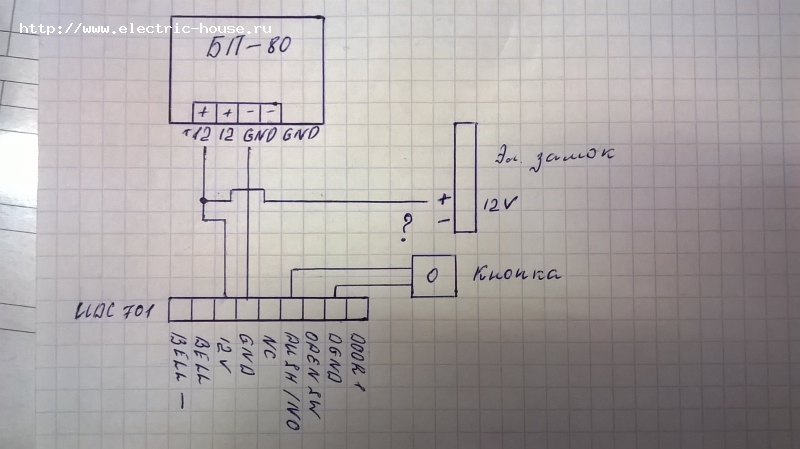 http://www.electric-house.ru
БП-80
+ + - -
+12 12 GND GND
Эл. замок
+ 12V
? -
О Кнопка
IDC 701
BELL -
BELL
12V
GND
NC
PUSH/NO
OPEN SW
DGND
DOOR 1